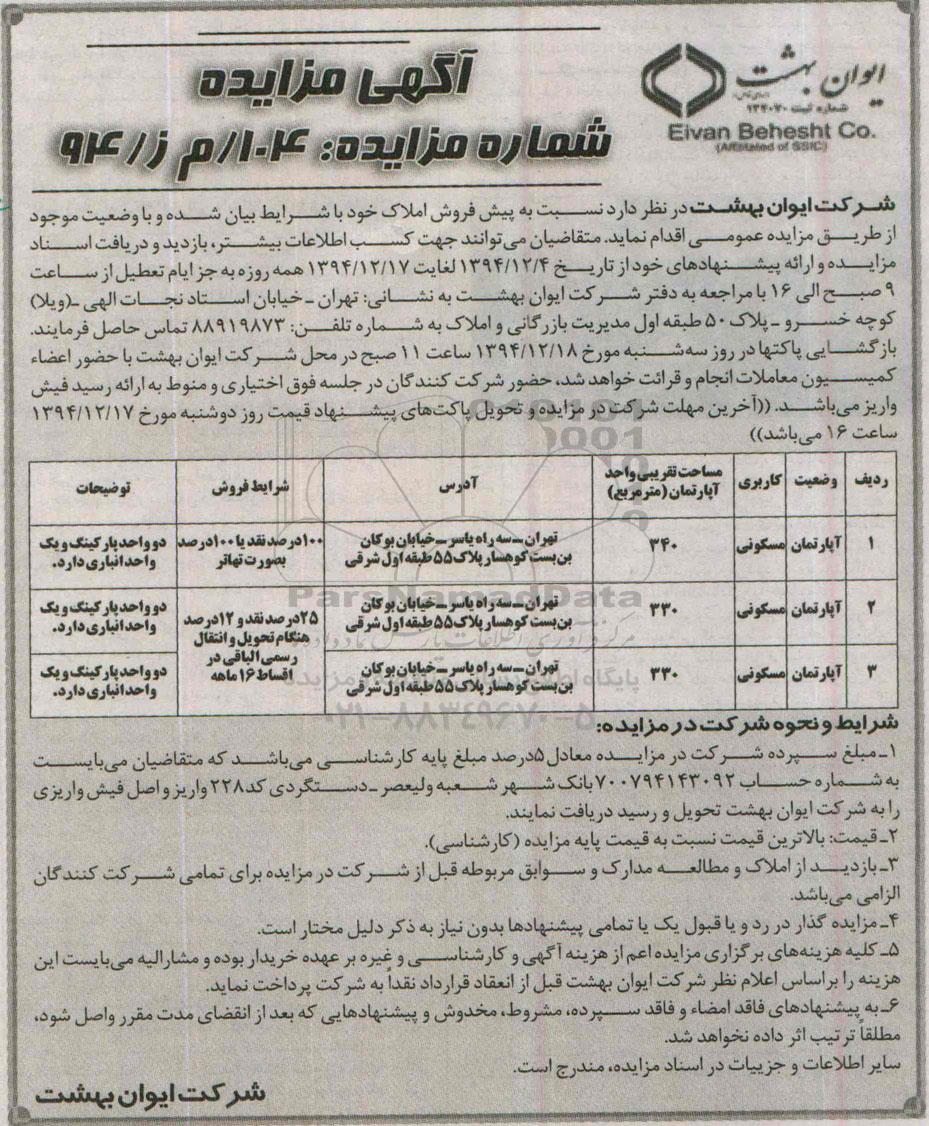 آگهی مزایده
شماره مزایده: ۱۰۴/م ز/۹۴
ایوان بهشت
(سهامی خاص)
شماره ثبت ۱۳۴۰۷۰
Eivan Behesht Co.
(Affiliated of SSIC)
شرکت ایوان بهشت در نظر دارد نسبت به پیش فروش املاک خود با شرایط بیان شده و با وضعیت موجود
از طریق مزایده عمومی اقدام نماید. متقاضیان می‌توانند جهت کسب اطلاعات بیشتر، بازدید و دریافت اسناد
مزایده و ارائه پیشنهادهای خود از تاریخ ۱۳۹۴/۱۲/۴ لغایت ۱۳۹۴/۱۲/۱۷ همه روزه به جز ایام تعطیل از ساعت
۹ صبح الی ۱۶ با مراجعه به دفتر شرکت ایوان بهشت به نشانی: تهران ـ خیابان استاد نجات الهی ـ (ویلا)
کوچه خسرو ـ پلاک ۵۰ طبقه اول مدیریت بازرگانی و املاک به شماره تلفن: ۸۸۹۱۹۸۷۳ تماس حاصل فرمایند.
بازگشایی پاکتها در روز سه‌شنبه مورخ ۱۳۹۴/۱۲/۱۸ ساعت ۱۱ صبح در محل شرکت ایوان بهشت با حضور اعضاء
کمیسیون معاملات انجام و قرائت خواهد شد، حضور شرکت کنندگان در جلسه فوق اختیاری و منوط به ارائه رسید فیش
واریز می‌باشد. ((آخرین مهلت شرکت در مزایده و تحویل پاکت‌های پیشنهاد قیمت روز دوشنبه مورخ ۱۳۹۴/۱۲/۱۷
ساعت ۱۶ می‌باشد))
ردیف وضعیت کاربری مساحت تقریبی واحد آپارتمان (مترمربع) آدرس شرایط فروش توضیحات
۱ آپارتمان مسکونی ۳۴۰ تهران ـ سه راه یاسر ـ خیابان بوکان ۱۰۰درصد نقد یا ۱۰۰درصد دو واحد پارکینگ و یک
بن‌بست کوهسار پلاک ۵۵ طبقه اول شرقی بصورت تهاتر واحد انباری دارد.
۲ آپارتمان مسکونی ۳۳۰ تهران ـ سه راه یاسر ـ خیابان بوکان ۲۵درصد نقد و ۱۲درصد دو واحد پارکینگ و یک
بن‌بست کوهسار پلاک ۵۵ طبقه اول شرقی هنگام تحویل و انتقال واحد انباری دارد.
۳ آپارتمان مسکونی ۳۳۰ تهران ـ سه راه یاسر ـ خیابان بوکان رسمی الباقی در دو واحد پارکینگ و یک
بن‌بست کوهسار پلاک ۵۵ طبقه اول شرقی اقساط ۱۶ ماهه واحد انباری دارد.
ParsNamadData
۰۲۱-۸۸۳۴۹۶۷۰-۵
شرایط و نحوه شرکت در مزایده:
۱ـ مبلغ سپرده شرکت در مزایده معادل ۵درصد مبلغ پایه کارشناسی می‌باشد که متقاضیان می‌بایست
به شماره حساب ۷۰۰۷۹۴۱۴۳۰۹۲ بانک شهر شعبه ولیعصر ـ دستگردی کد ۲۲۸ واریز و اصل فیش واریزی
را به شرکت ایوان بهشت تحویل و رسید دریافت نمایند.
۲ـ قیمت: بالاترین قیمت نسبت به قیمت پایه مزایده (کارشناسی).
۳ـ بازدید از املاک و مطالعه مدارک و سوابق مربوطه قبل از شرکت در مزایده برای تمامی شرکت کنندگان
الزامی می‌باشد.
۴ـ مزایده گذار در رد و یا قبول یک یا تمامی پیشنهادها بدون نیاز به ذکر دلیل مختار است.
۵ـ کلیه هزینه‌های برگزاری مزایده اعم از هزینه آگهی و کارشناسی و غیره بر عهده خریدار بوده و مشارالیه می‌بایست این
هزینه را براساس اعلام نظر شرکت ایوان بهشت قبل از انعقاد قرارداد نقداً به شرکت پرداخت نماید.
۶ـ به پیشنهادهای فاقد امضاء و فاقد سپرده، مشروط، مخدوش و پیشنهادهایی که بعد از انقضای مدت مقرر واصل شود،
مطلقاً ترتیب اثر داده نخواهد شد.
سایر اطلاعات و جزییات در اسناد مزایده، مندرج است.
شرکت ایوان بهشت